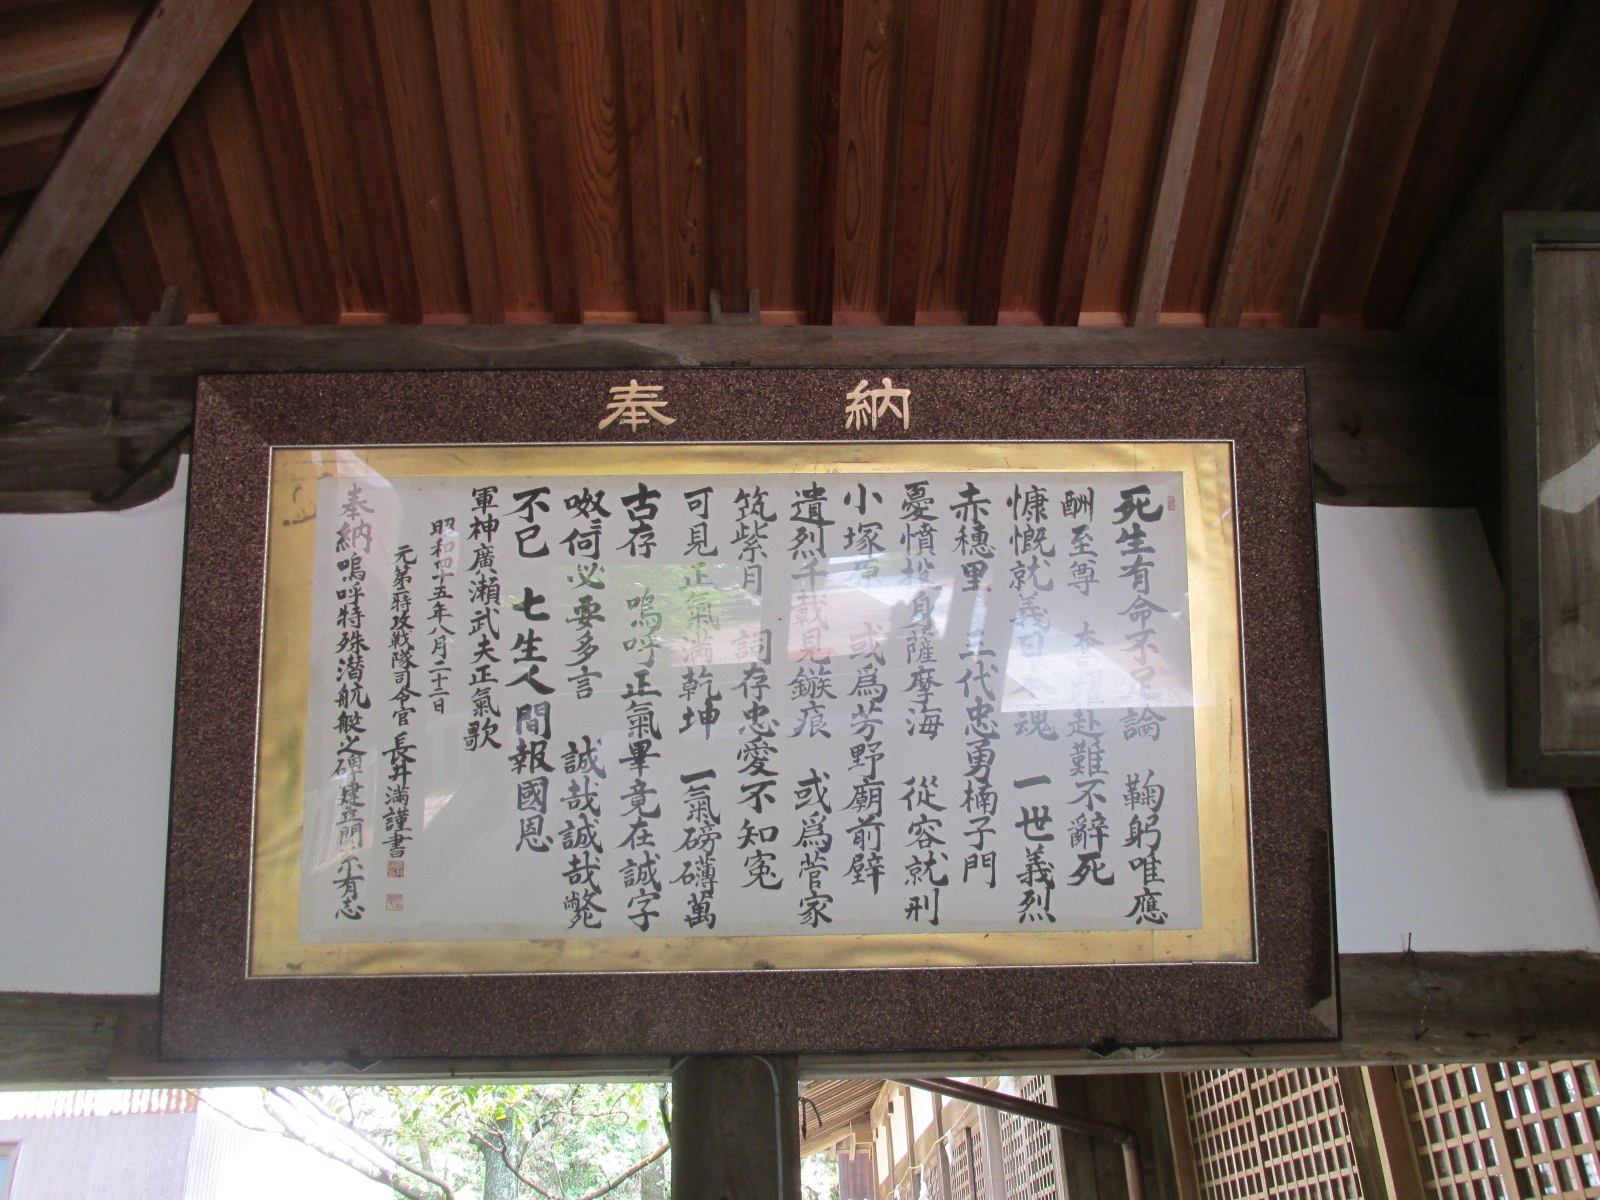 奉納
死生有命不足論　鞠躬唯應
酬至尊　奮躍赴難不辭死
慷慨就義日本魂　一世義烈
赤穗里　三代忠勇楠子門
憂憤投身薩摩海　從容就刑
小塚原　或爲芳野廟前壁
遺烈千載見鏃痕　或爲菅家
筑紫月　詞存忠愛不知寃
可見正氣満乾坤　一氣磅礴萬
古存　嗚呼正氣畢竟在誠字
呶々何必要多言　誠哉誠哉斃
不已　七生人間報國恩
軍神廣瀬武夫正氣歌
昭和四十五年八月二十二日
元第二特攻戦隊司令官 長井満謹書
奉納嗚呼特殊潜航艇之碑建立関係有志